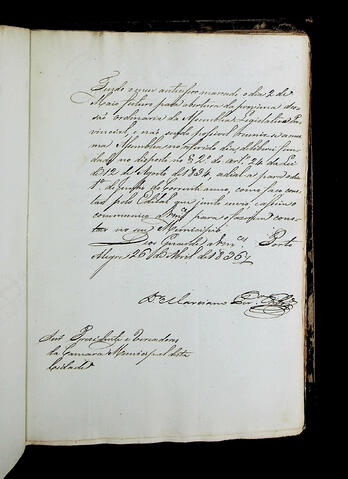 Tendo o meu antecessor marcado o dia 2 de
Maio futuro para abertura da proxima Ses-
são ordinaria da Assemblea Legislativa Pro-
vincial, e não sendo possivel reunir-se a mes-
ma Assemblea no referido dia, deliberei fun-
dado no disposto no § 2º do artº 24 da Lei
de 12 de Agosto de 1834, adial-a para o dia
1º de Junho do corrente anno, como faço cons-
tar pelo Edital que junto envio, e assim o
communico a Vmces para o fazerem cons-
tar no seu Municipio.
Deos Guarde a Vmces Porto
Alegre 26 de Abril de 1856
Snrs Presidente e Vereadores
da Camara Municipal desta
Cidade